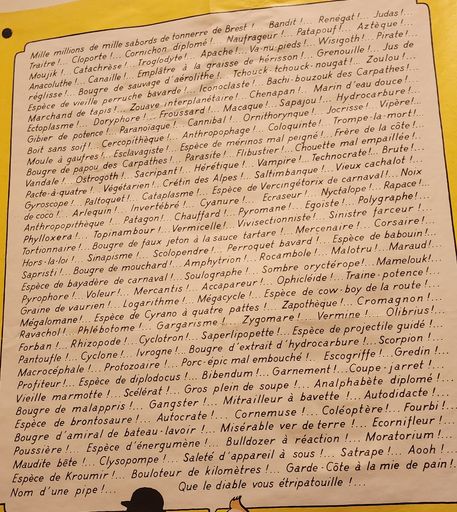 Mille millions de mille sabords de tonnerre de Brest !... Bandit !... Renégat !... Judas !...
Traitre !... Cloporte !... Cornichon diplomé !... Naufrageur !... Patapouf !... Aztèque !...
Moujik !... Catachrèse !... Troglodyte !... Apache !... Va-nu-pieds !... Wisigoth !... Pirate !...
Anacoluthe !... Canaille !... Emplâtre à la graisse de hérisson !... Grenouille !... Jus de
réglisse !... Bougre de sauvage d'aérolithe !... Tchouck-tchouck-nougat !... Zoulou !...
Espèce de vieille perruche bavarde !... Iconoclaste !... Bachi-bouzouk des Carpathes !...
Marchand de tapis !... Zouave interplanétaire !... Chenapan !... Marin d'eau douce !...
Ectoplasme !... Doryphore !... Froussard !... Macaque !... Sapajou !... Hydrocarbure !...
Gibier de potence !... Paranoïaque !... Cannibale !... Ornithorynque !... Jocrisse !... Vipère !...
Boit sans soif !... Cercopithèque !... Anthropophage !... Coloquinte !... Trompe-la-mort !...
Moule à gaufres !... Esclavagiste !... Espèce de mérinos mal peigné !... Frère de la côte !...
Bougre de papou des Carpathes !... Parasite !... Flibustier !... Chouette mal empaillée !...
Vandale !... Ostrogoth !... Sacripant !... Hérétique !... Vampire !... Technocrate !... Brute !...
Pacte-à-quatre !... Végétarien !... Crétin des Alpes !... Saltimbanque !... Vieux cachalot !...
Gyroscope !... Paltoquet !... Cataplasme !... Espèce de Vercingétorix de carnaval !... Noix
de coco !... Arlequin !... Invertébré !... Cyanure !... Ecraseur !... Nyctalope !... Rapace !...
Anthropopithèque !... Patagon !... Chauffard !... Pyromane !... Egoïste !... Polygraphe !...
Phylloxera !... Topinambour !... Vermicelle !... Vivisectionniste !... Sinistre farceur !...
Tortionnaire !... Bougre de faux jeton à la sauce tartare !... Mercenaire !... Corsaire !...
Hors-la-loi !... Sinapisme !... Scolopendre !... Perroquet bavard !... Espèce de babouin !...
Sapristi !... Bougre de mouchard !... Amphitryon !... Rocambole !... Malotru !... Maraud !...
Espèce de bayadère de carnaval !... Soulographe !... Sombre oryctérope !... Mamelouk !...
Pyrophore !... Voleur !... Mercantis !... Accapareur !... Ophicléide !... Traine-potence !...
Graine de vaurien !... Logarithme !... Mégacycle !... Espèce de cow-boy de la route !...
Mégalomane !... Espèce de Cyrano à quatre pattes !... Zapothèque !... Cromagnon !...
Ravachol !... Phlébotome !... Gargarisme !... Zygomare !... Vermine !... Olibrius !...
Forban !... Rhizopode !... Cyclotron !... Saperlipopette !... Espèce de projectile guidé !...
Pantoufle !... Cyclone !... Ivrogne !... Bougre d'extrait d'hydrocarbure !... Scorpion !...
Macrocéphale !... Protozoaire !... Porc-épic mal embouché !... Escogriffe !... Gredin !...
Profiteur !... Espèce de diplodocus !... Bibendum !... Garnement !... Coupe-jarret !...
Vieille marmotte !... Scélérat !... Gros plein de soupe !... Analphabète diplomé !...
Bougre de malappris !... Gangster !... Mitrailleur à bavette !... Autodidacte !...
Espèce de brontosaure !... Autocrate !... Cornemuse !... Coléoptère !... Fourbi !...
Bougre d'amiral de bateau-lavoir !... Misérable ver de terre !... Ecornifleur !...
Poussière !... Espèce d'énergumène !... Bulldozer à réaction !... Moratorium !...
Maudite bête !... Clysopompe !... Saleté d'appareil à sous !... Satrape !... Aooh !...
Espèce de Kroumir !... Bouloteur de kilomètres !... Garde-Côte à la mie de pain !...
Nom d'une pipe !... Que le diable vous étripatouille !...